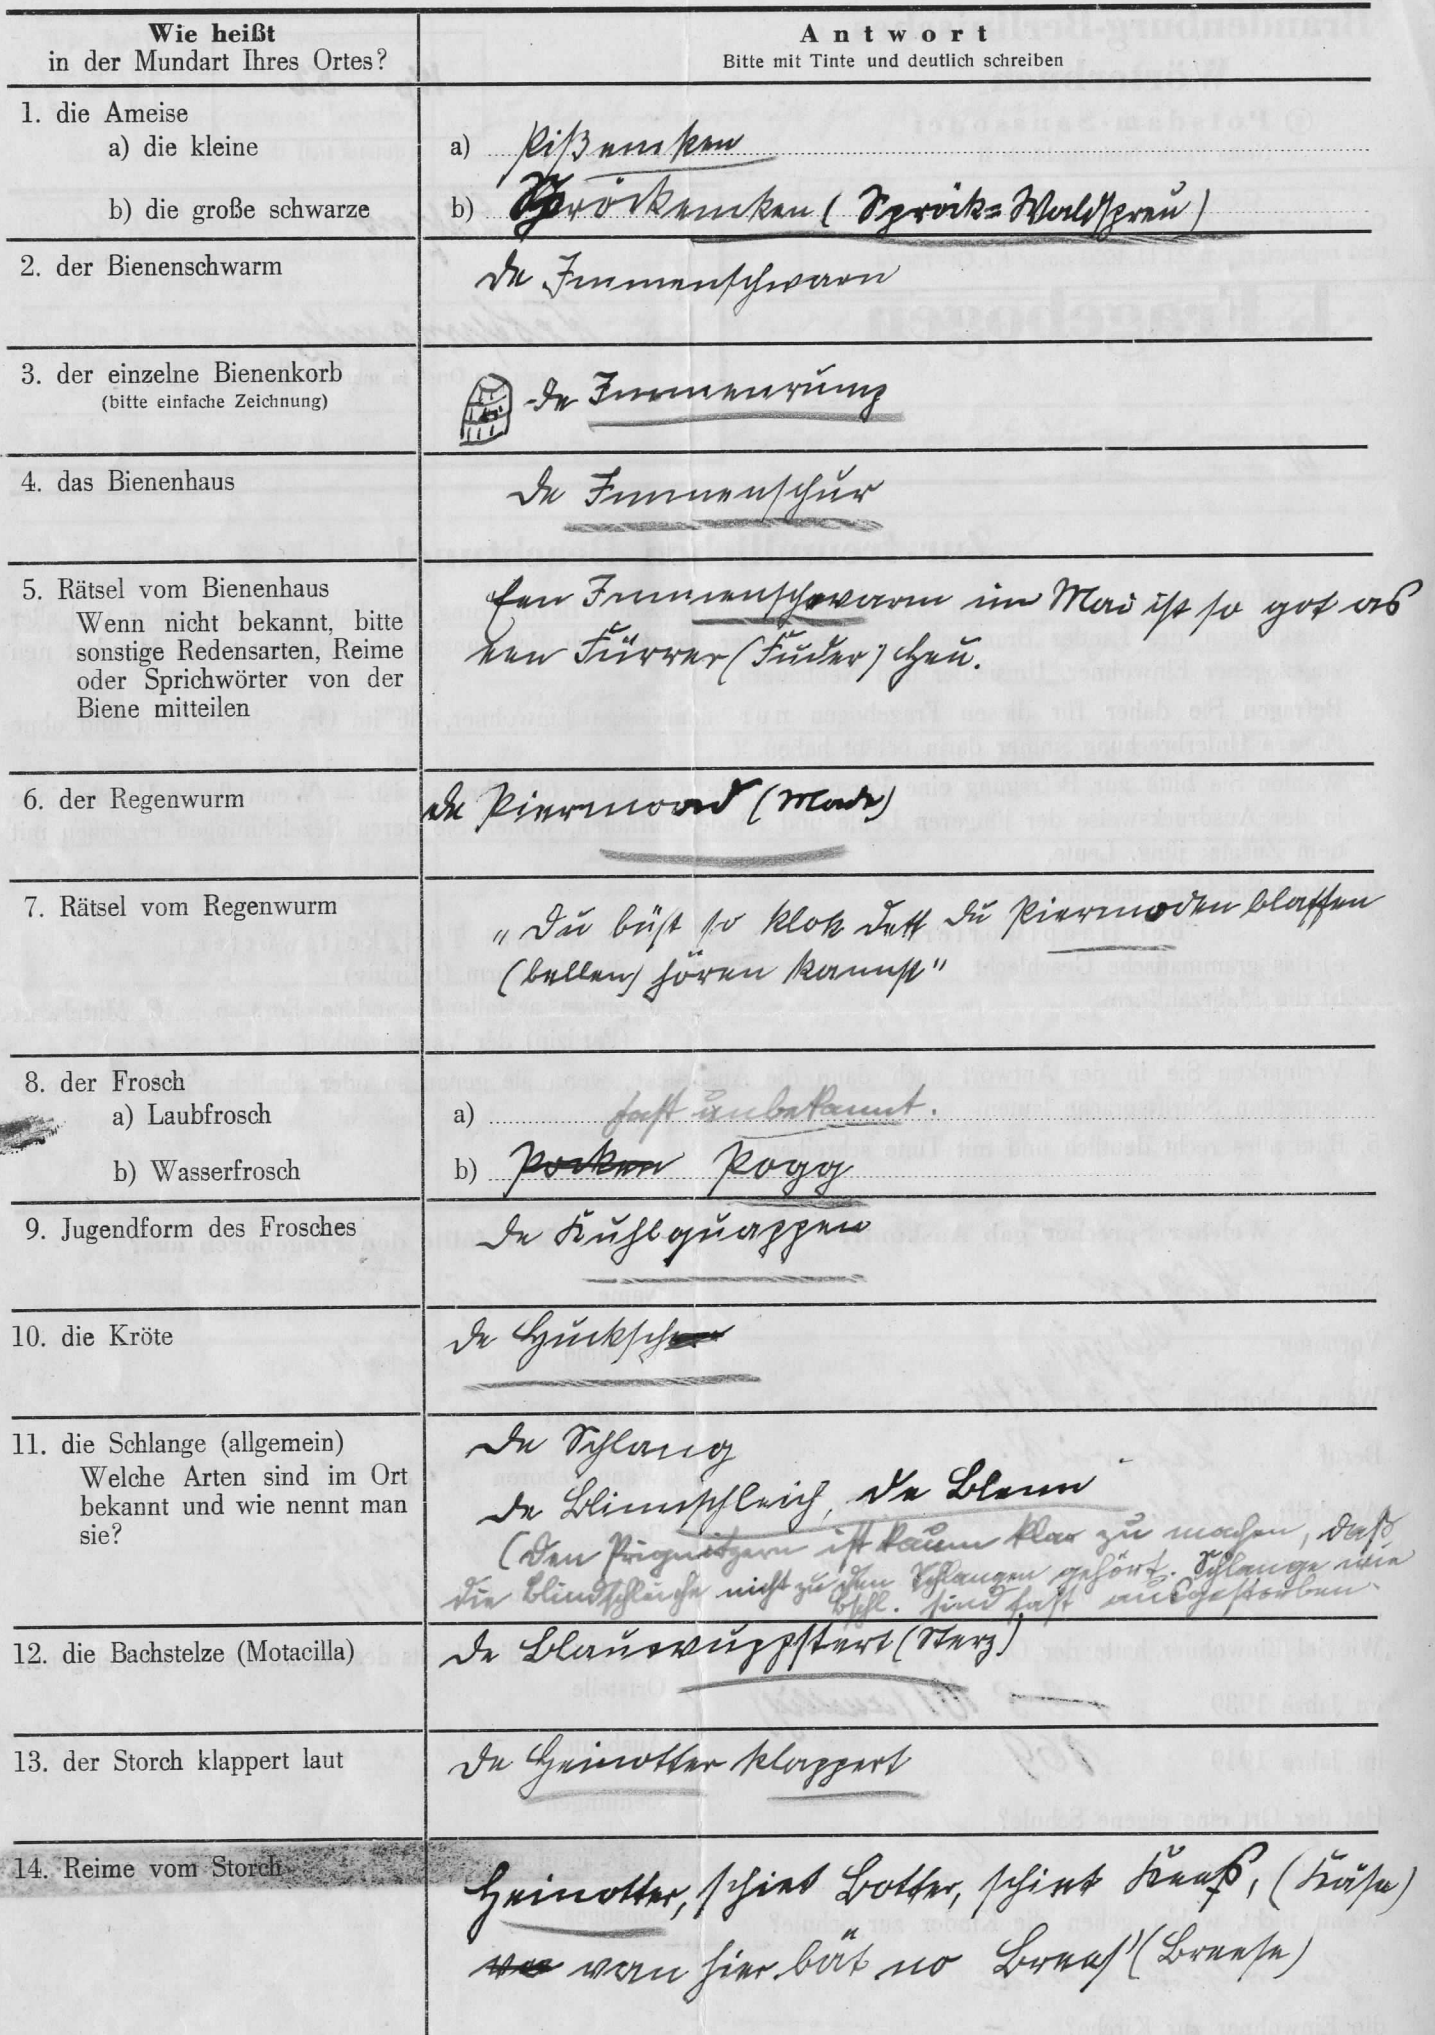 Wie heißt
in der Mundart Ihres Ortes?
Antwort
Bitte mit Tinte und deutlich schreiben
1. die Ameise
a) die kleine
a) Pißemken
b) die große schwarze
b) Sprockemken (Sprock=Waldspreu)
2. der Bienenschwarm
de Immenschwarm
3. der einzelne Bienenkorb
(bitte einfache Zeichnung)
de Immenrump
4. das Bienenhaus
de Immenschur
5. Rätsel vom Bienenhaus
Wenn nicht bekannt, bitte
sonstige Redensarten, Reime
oder Sprichwörter von der
Biene mitteilen
Een Immenschwarm im Mai ist so got as
een Fürrer (Fuder) Heu.
6. der Regenwurm
de Piermood (Made)
7. Rätsel vom Regenwurm
„Du büst so klok dett du Piermoden blaffen
(bellen) hören kannst"
8. der Frosch
a) Laubfrosch
a) fast unbekannt.
b) Wasserfrosch
b) Pocken Pogg
9. Jugendform des Frosches
de Kuhlquappen
10. die Kröte
de Hucksch
11. die Schlange (allgemein)
Welche Arten sind im Ort
bekannt und wie nennt man
sie?
de Schlang
de Blinnschleich, de Blenn
(Den Prignitzern ist kaum klar zu machen, daß
die Blindschleiche nicht zu den Schlangen gehört. Schlange wie
Bschl. sind fast ausgestorben.
12. die Bachstelze (Motacilla)
de Blauwuppstert (Sterz)
13. der Storch klappert laut
de Heinotter klappert
14. Reime vom Storch
Heinotter, schiet Botter, schiet Kees, (Käse)
van hier bät no Brees' (Breese)